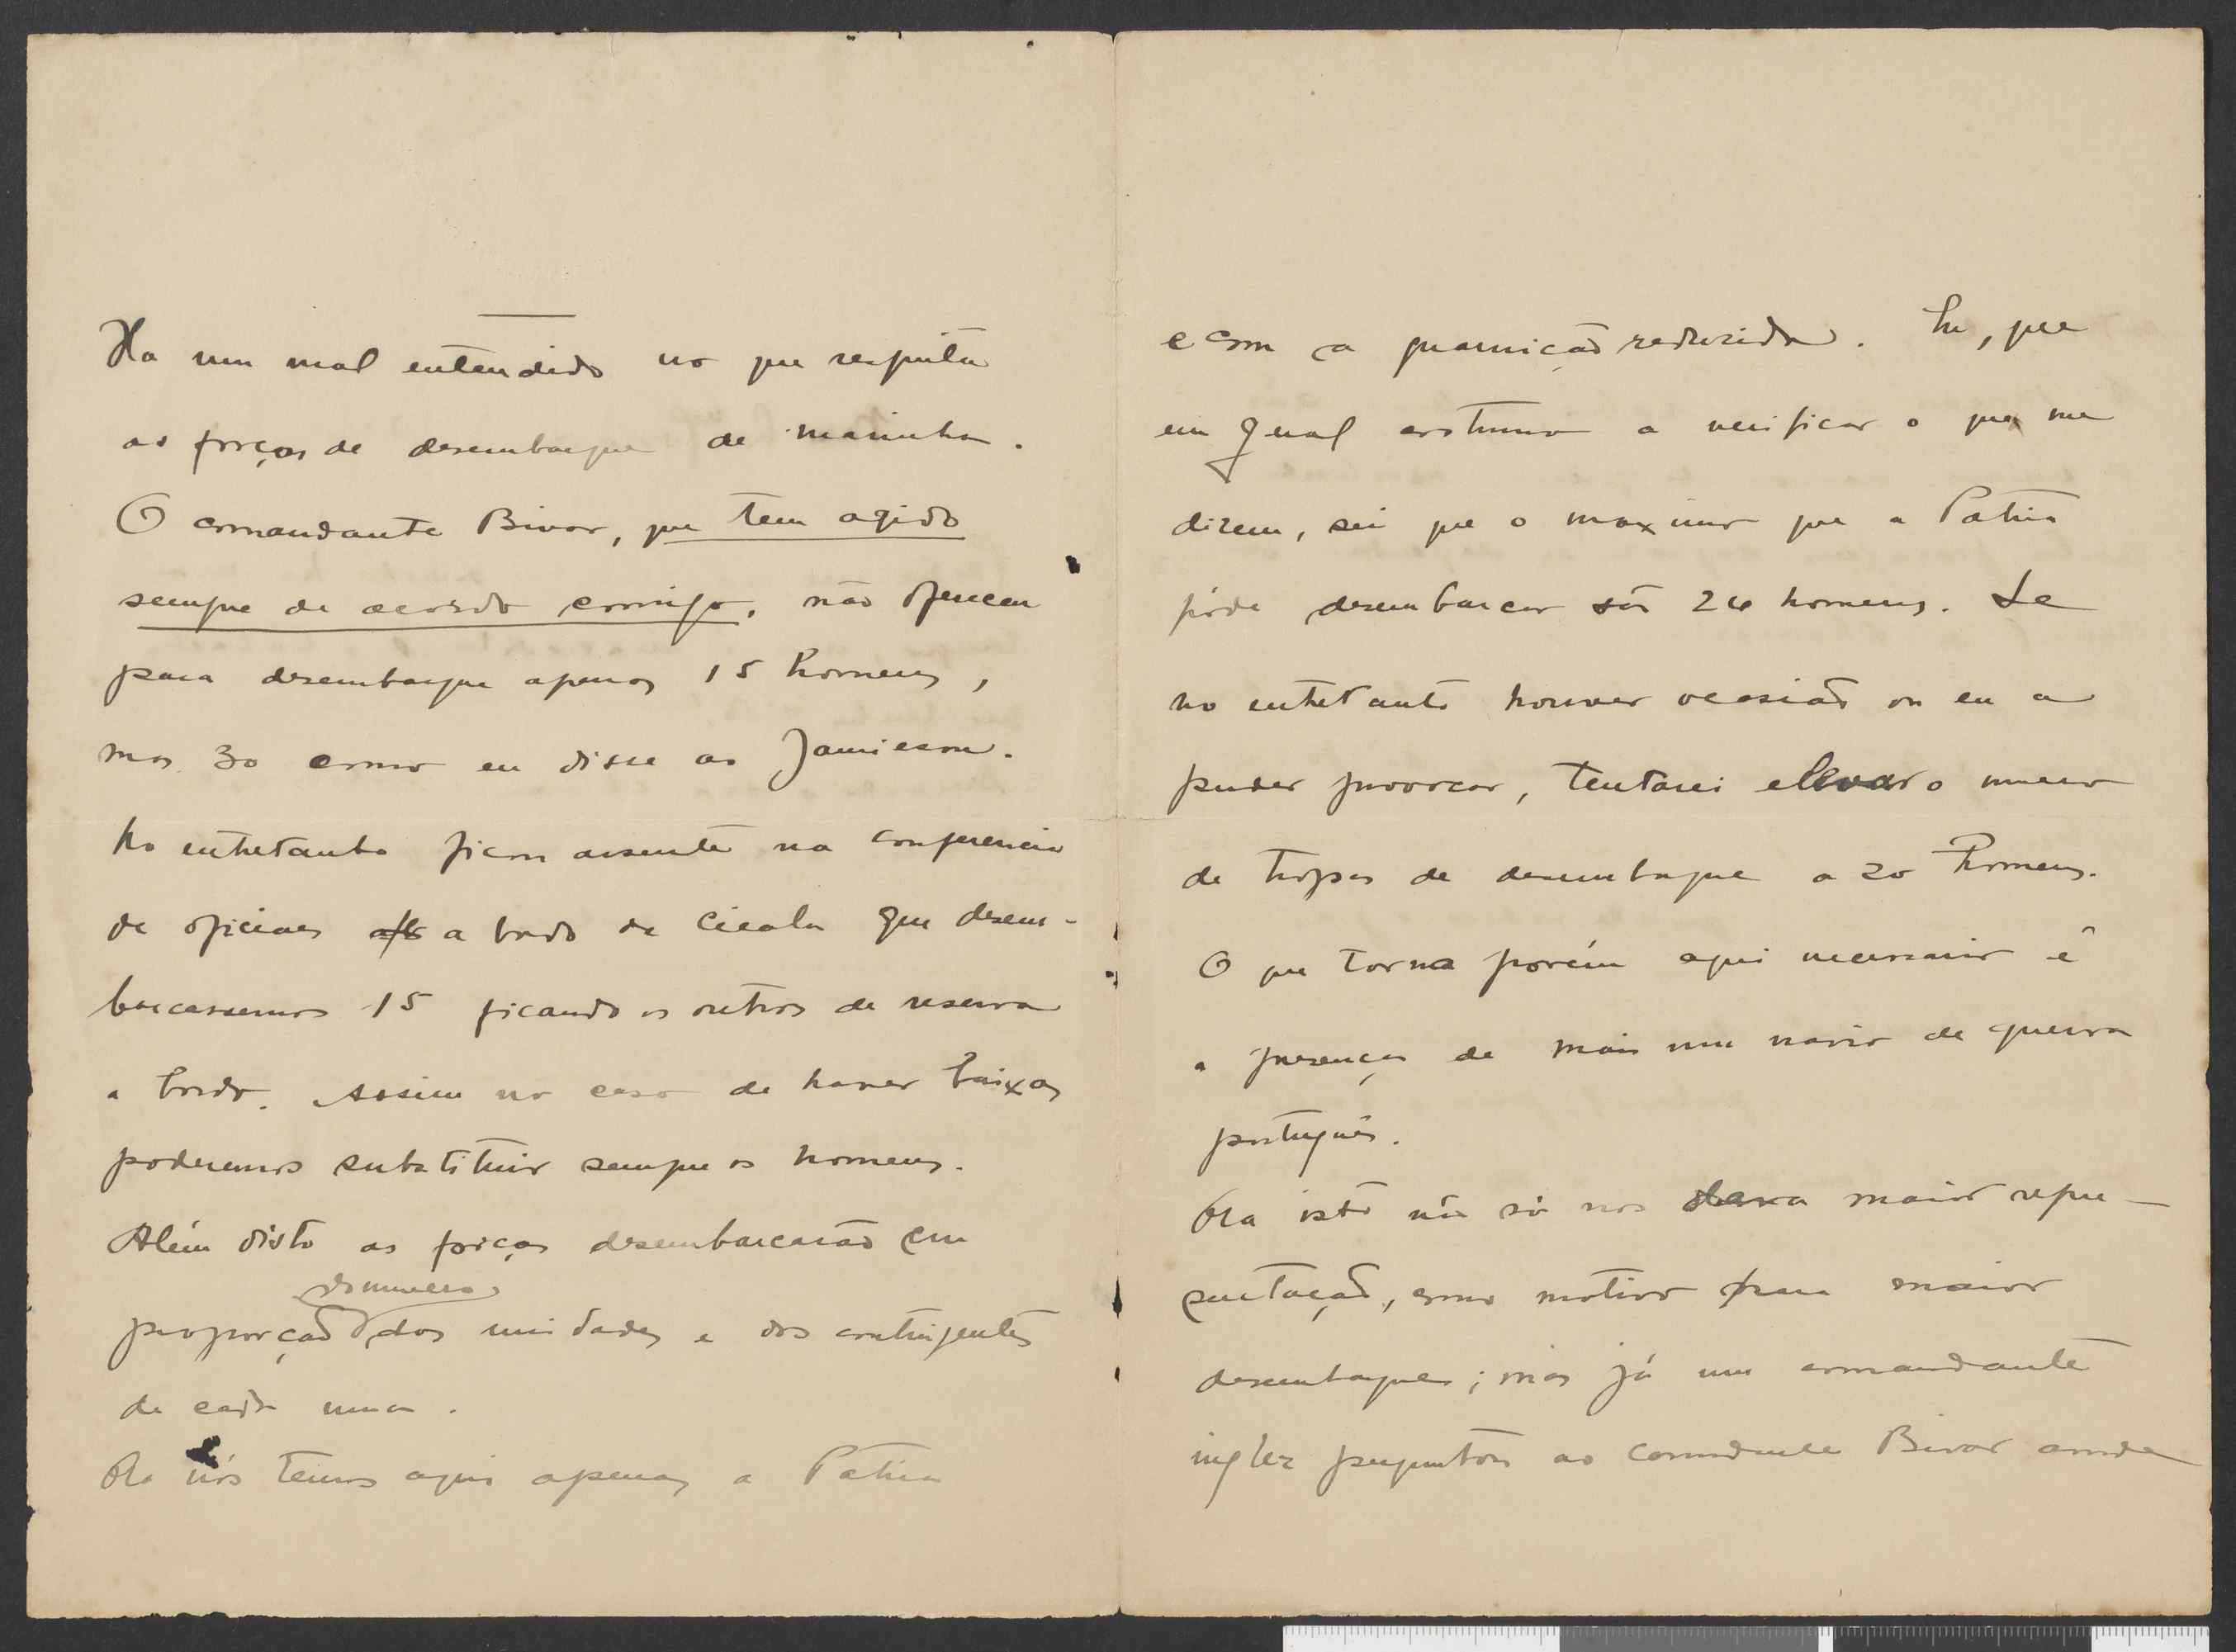 Ha um mal entendido no que respeita
as forças de desembarque de marinha.
O comandante Bivar, que tem agido
sempre de acordo comigo, não ofereceu
para desembarque apenas 15 homens,
mas 30 como eu disse ao Jamieson.
No entretanto ficou assente na conferencia
de oficiaes a bordo da Cicala que desem-
barcassemos 15 ficando os outros de reserva
a bordo. Assim no caso de haver baixas
poderemos substituir sempre os homens.
Além disto as forças desembarcarão em
do numero
proporção das unidades e dos contingentes
de cada uma.
Ora nós temos aqui apenas a Patria
e com a guarnição reduzida. Eu, que
em geral costumo a verificar o que me
dizem, sei que o maximo que a Patria
póde desembarcar são 26 homens. Se
no entretanto houver ocasião ou eu a
puder provocar, tentarei elevar o numero
de tropas de desembarque a 20 homens.
O que torna porém aqui necessario é
a presença de mais um navio de guerra
português.
Ora isto não só nos dava maior repre-
sentação, como motivo para maior
desembarque; mas já um comandante
inglez perguntou ao comandante Bivar aonde